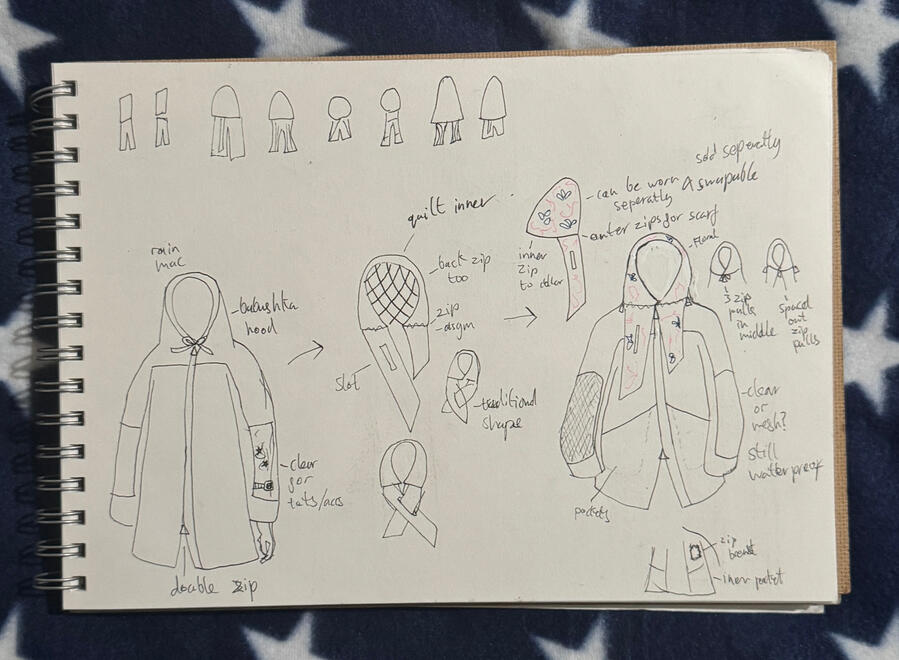 rain
mac
babushka
hood
clear
for
tats/accs
double zip
quilt inner
back zip
too
zip
dsgm
slot
traditional
shape
inner
zip
to collar
can be worn
seperatly
sold seperatly
& swapable
outer zips for scarf
floral
3 zip
pulls
in
middle
spaced
out
zip
pulls
clear
or
mesh?
still
waterproof
pockets
zip
inner pocket